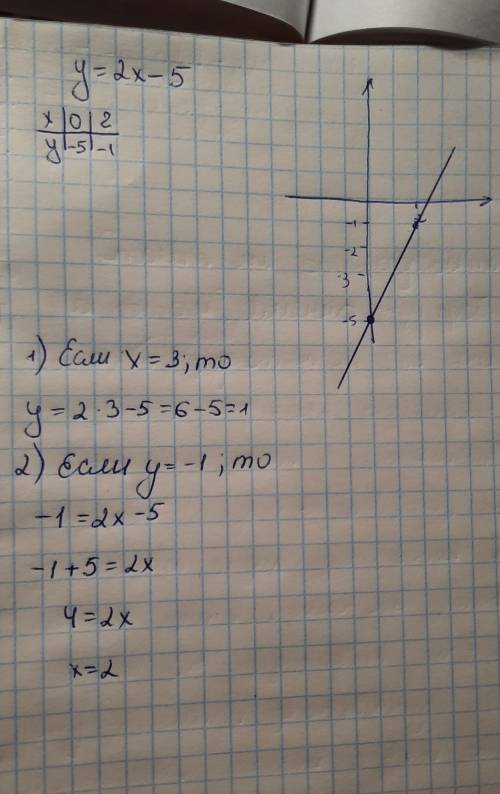 y=2x-5
x|0|2
y|-5|-1
2
-1
-2
-3
-5
1) Если x=3; то
y=2·3-5=6-5=1
2) Если y=-1; то
-1=2x-5
-1+5=2x
4=2x
x=2